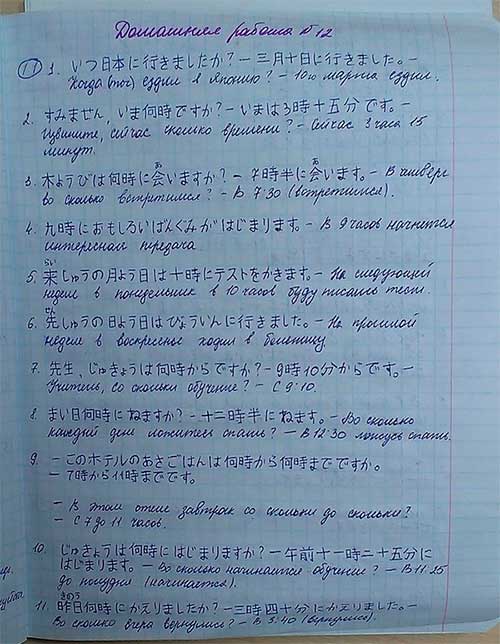 Домашняя работа №12
17 1. いつ日本に行きましたか? – 三月十日に行きました。–
Когда (ты) ездил в Японию? – 10го марта ездил.
2. すみません、いま何時ですか? – いまは3時十五分です。–
Извините, сейчас сколько времени? – Сейчас 3 часа 15
минут.
あ あ
3. 木ようびは何時に会いますか? – 7時半に会います。– В четверг
во сколько встретимся? – В 7:30 (встретимся).
4. 九時におもしろいばんぐみがはじまります。– В 9 часов начнется
интересная передача
らい
5. 来しゅうの月よう日は十時にテストをかきます。– На следующей
неделе в понедельник в 10 часов буду писать тест.
せん
6. 先しゅうの日よう日はびょういんに行きました。– На прошлой
неделе в воскресенье ходил в больницу
7. 先生、じゅぎょうは何時からですか? – 9時10分からです。–
Учитель, со скольки обучение? – С 9:10.
8. まい日何時にねますか? – 十二時半にねます。– Во сколько
каждый день ложитесь спать? – В 12:30 ложусь спать.
9. – このホテルのあさごはんは何時から何時までですか。
– 7時から11時までです。
– В этом отеле завтрак со скольки до скольки?
– С 7 до 11 часов.
10. じゅぎょうは何時にはじまりますか? – 午前十一時二十五分に
はじまります。– Во сколько начинается обучение? – В 11:25
до полудня (начинается).
きのう
11. 昨日何時にかえりましたか? – 三時四十分にかえりました。–
Во сколько вчера вернулись? – В 3:40 (вернулись).